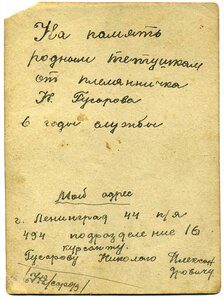 На память
родным тетушкам
от племянничка
Н. Гусарова
в годы службы
Мой адрес
г. Ленинград 44 п/я
494 подразделение 16
курсанту
Гусарову Николаю Алексан
дровичу